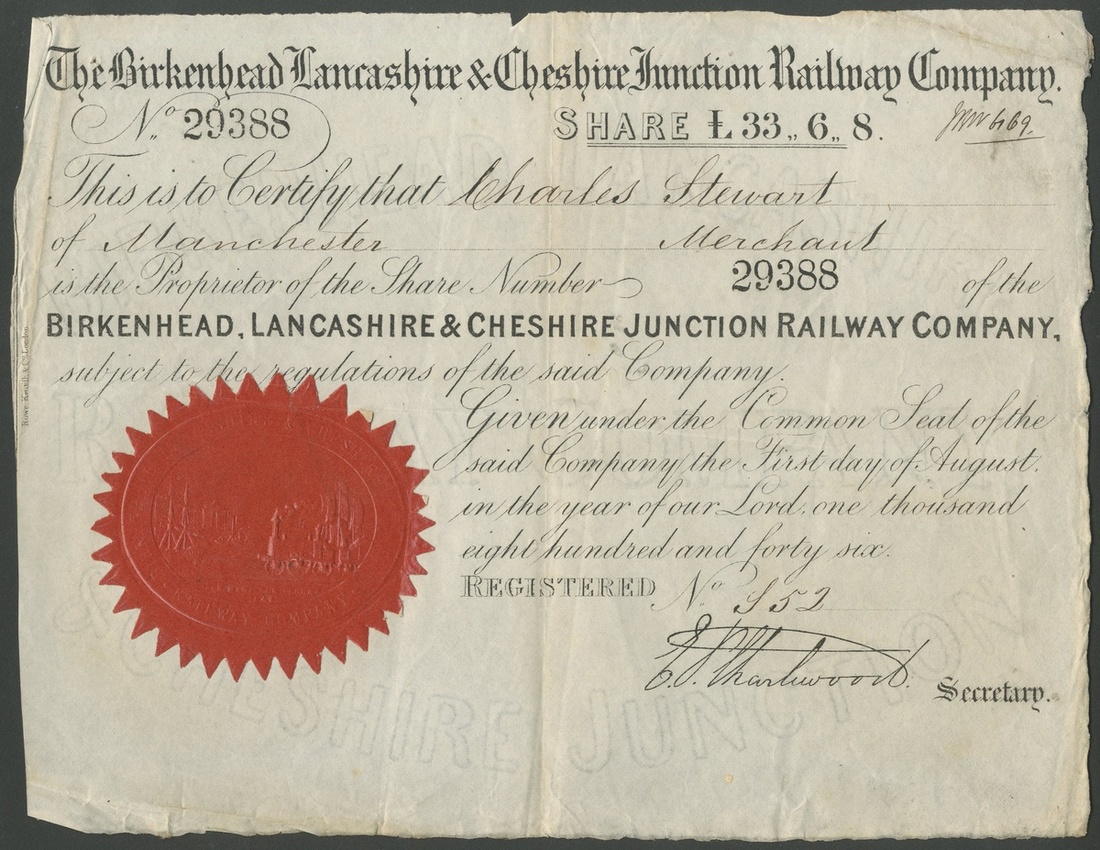 The Birkenhead Lancashire & Cheshire Junction Railway Company.
No. 29388 SHARE £ 33,, 6,, 8.
This is to Certify that Charles Stewart
of Manchester Merchant
is the Proprietor of the Share Number 29388 of the
BIRKENHEAD, LANCASHIRE & CHESHIRE JUNCTION RAILWAY COMPANY,
subject to the regulations of the said Company.
Given under the Common Seal of the
said Company, the First day of August.
in the year of our Lord. one thousand
eight hundred and forty six.
REGISTERED No. S 52
Secretary.
RAILWAY COMPANY